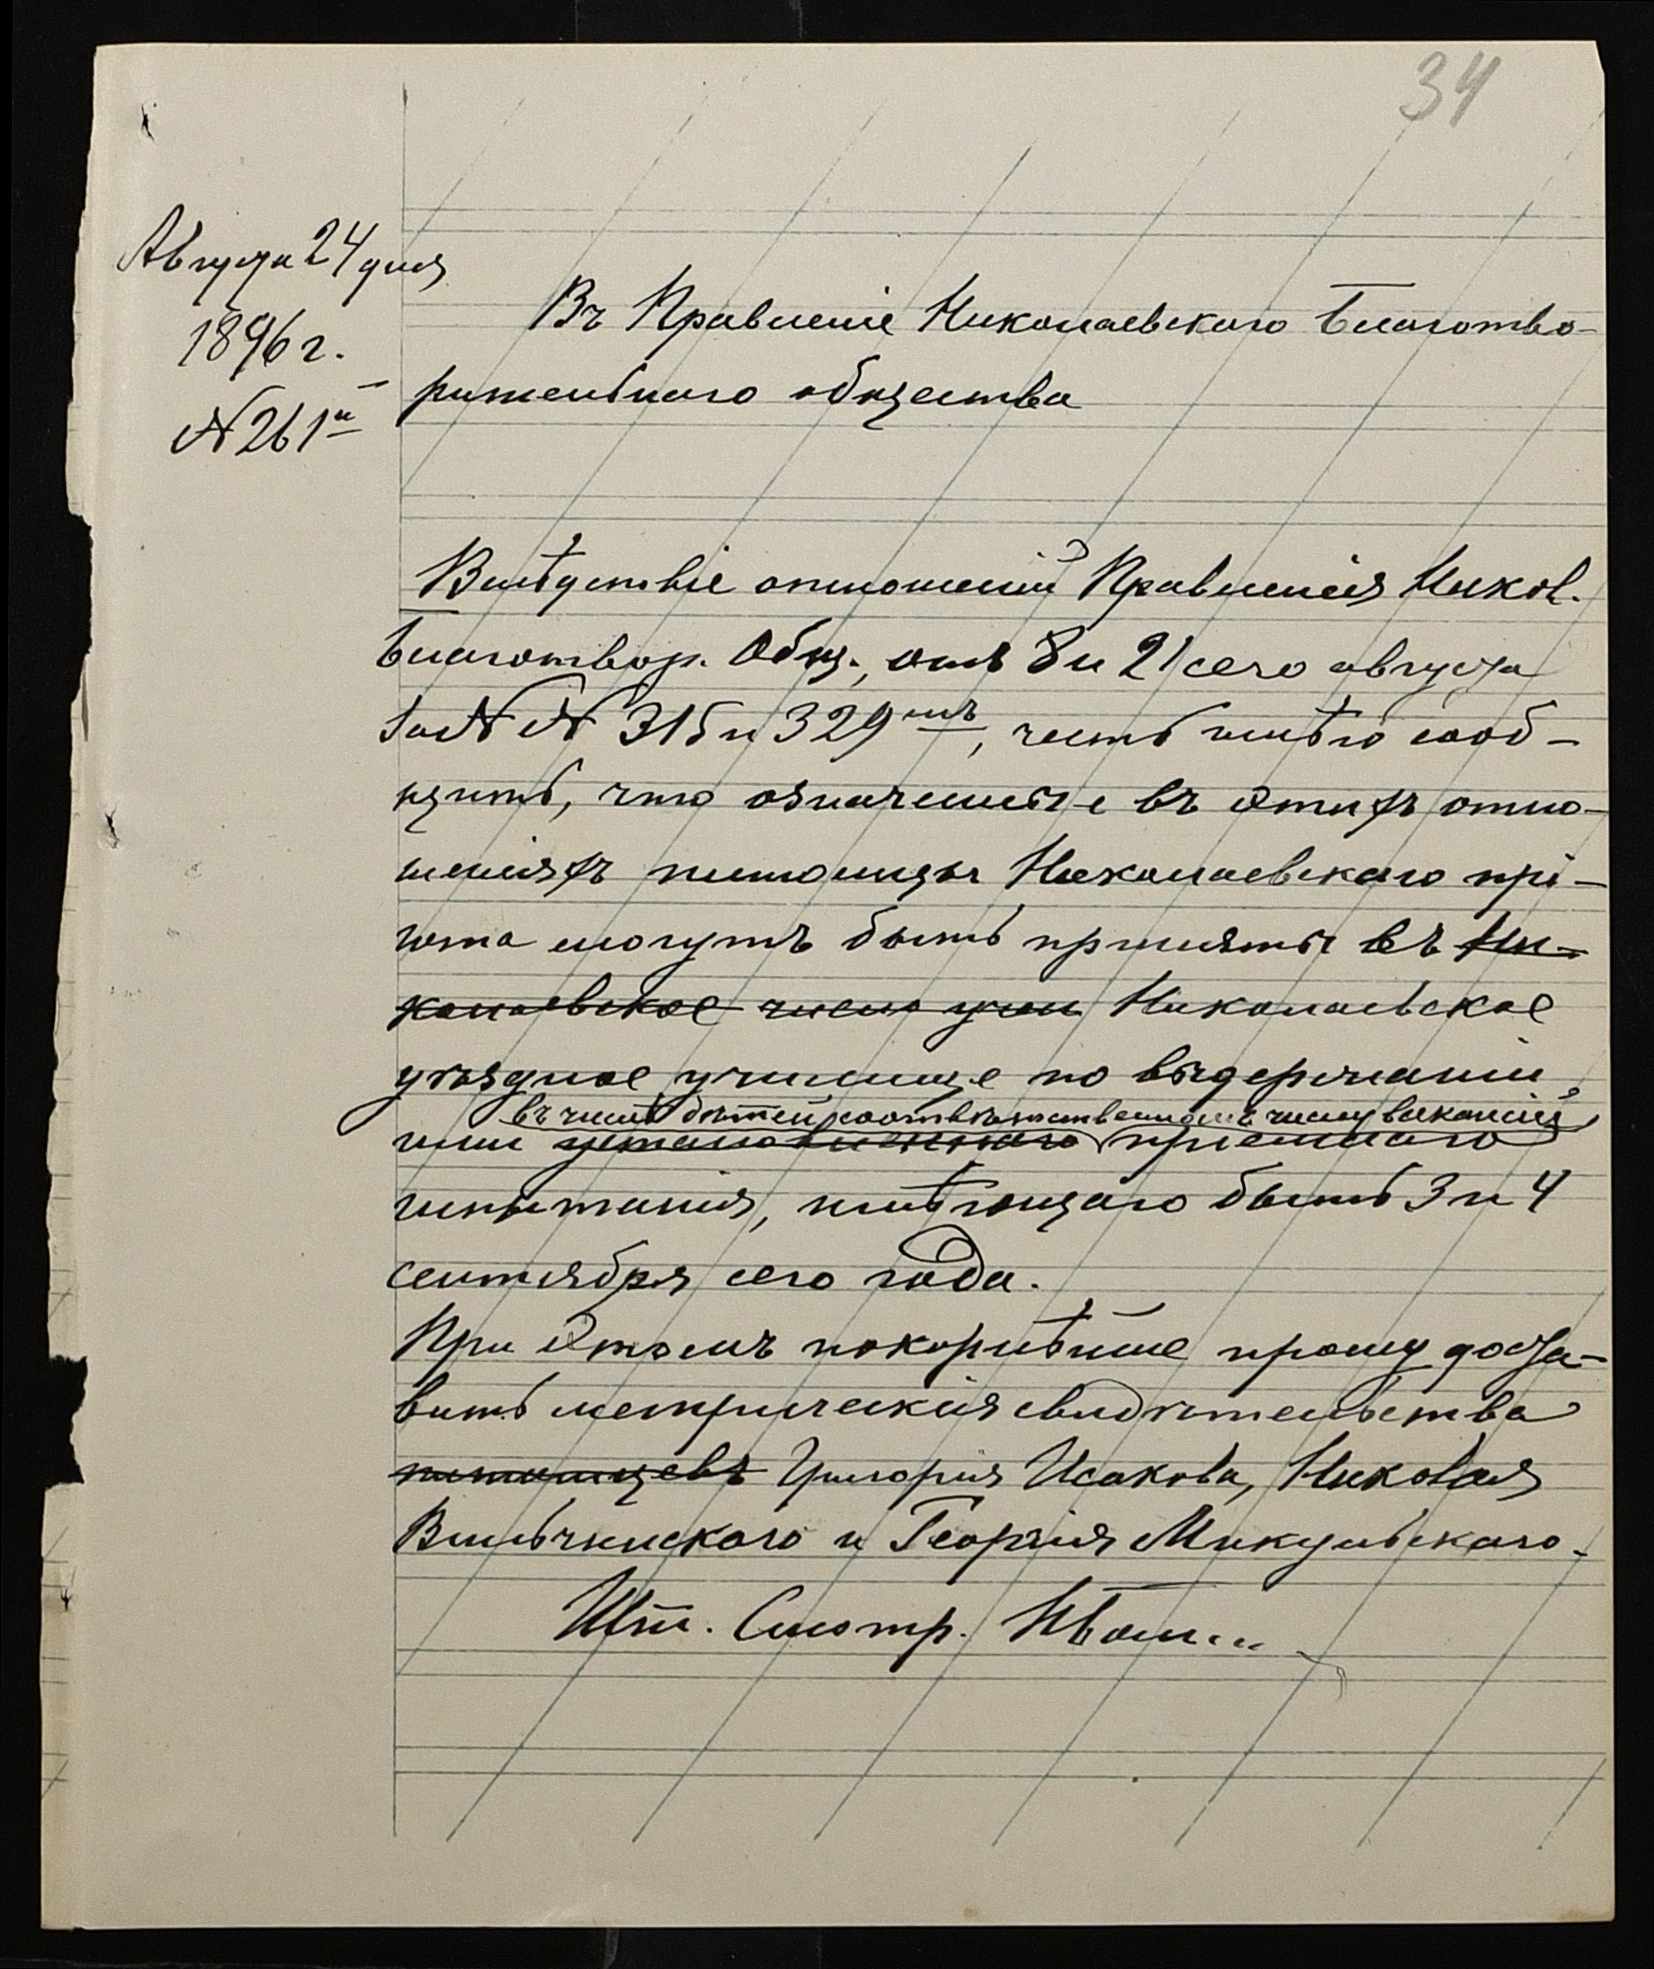 34
Августа 24 дня
1896 г.
№ 261й
Въ Правленіе Николаевскаго Благотво-
рительнаго общества
Вслѣдствіе отношеній Правленія Никол.
Благотвор. Общ., отъ 8 и 21 сего августа
за №№ 315 и 329мъ, честь имѣю сооб-
щить, что означенные въ этихъ отно-
шеніяхъ питомцы Николаевскаго прі-
юта могутъ быть приняты въ Ни-
колаевское число учен Николаевское
уѣздное училище по выдержаніи
въ числѣ дѣтей, соотвѣтственномъ числу вакансій
ими установленнаго пріемнаго
испытанія, имѣющаго быть 3 и 4
сентября сего года.
При этомъ покорнѣйше прошу доста-
вить метрическія свидѣтельства
питомцевъ Григорія Исакова, Николая
Вильчинскаго и Георгія Микульскаго.
Шт. Смотр.